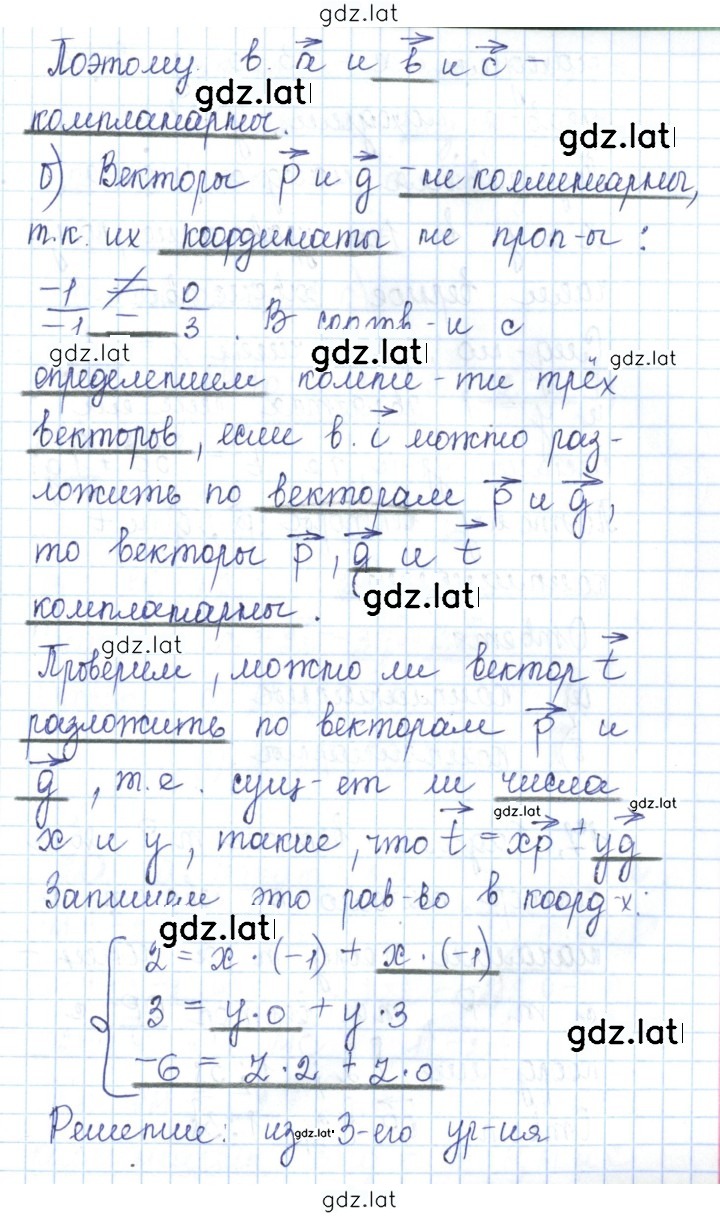 gdz.lat
Поэтому в. a⃗ и b⃗ и c⃗ –
gdz.lat
компланарны.
gdz.lat
б) Векторы p⃗ и g⃗ – не коллинеарны,
т.к. их координаты не проп-ы:
-1/-1 ≠ 0/3. В соотв-и с
gdz.lat gdz.lat gdz.lat
определением компл-ти трёх
векторов, если в. i⃗ можно раз-
ложить по векторам p⃗ и g⃗,
то векторы p⃗, g⃗ и t⃗
gdz.lat
компланарны.
gdz.lat
Проверим, можно ли вектор t⃗
разложить по векторам p⃗ и
g⃗, т.е. сущ-ет ли числа
gdz.lat gdz.lat
x и y, такие, что t⃗ = xp⃗ + yg⃗
Запишем это рав-во в коорд-х:
gdz.lat
2 = x · (-1) + x · (-1)
3 = y · 0 + y · 3
gdz.lat
-6 = z · 2 + z · 0
Решение: из gdz.lat 3-его ур-ия
gdz.lat